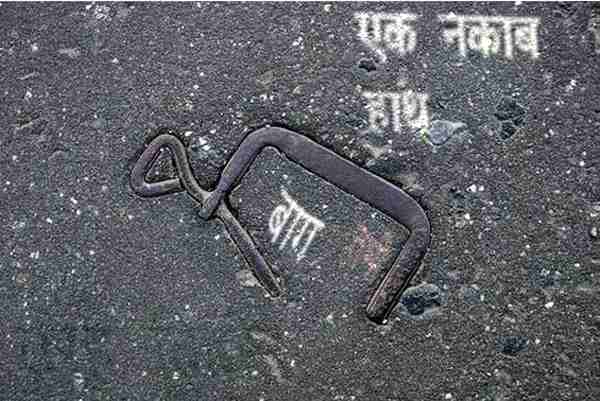 एक नकाब
हाथ
बाग